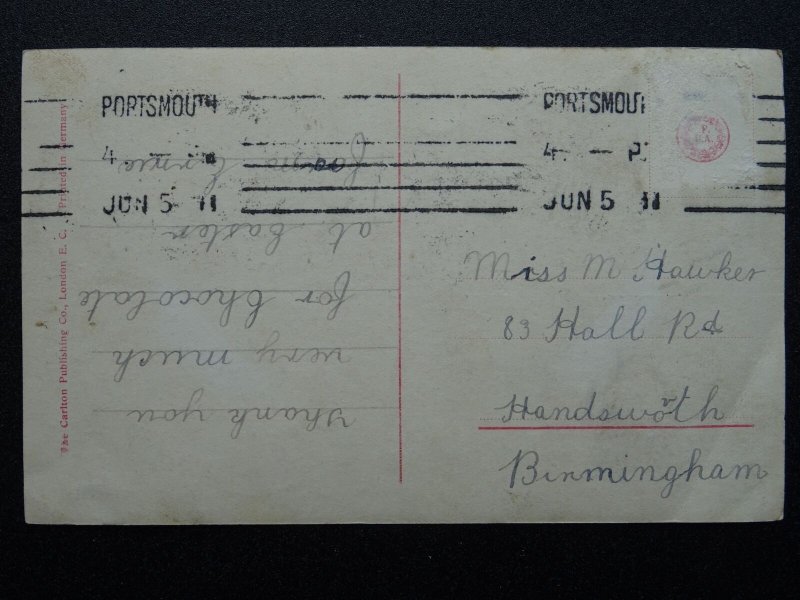 PORTSMOUTH
4 — P
JUN 5 11
PORTSMOUT
4 — P
JUN 5 11
The Carlton Publishing Co., London E. C. Printed in Germany
thank you
very much
for Chocolate
at Easter
from
Miss M Hawker
83 Hall Rd
Handsworth
Birmingham